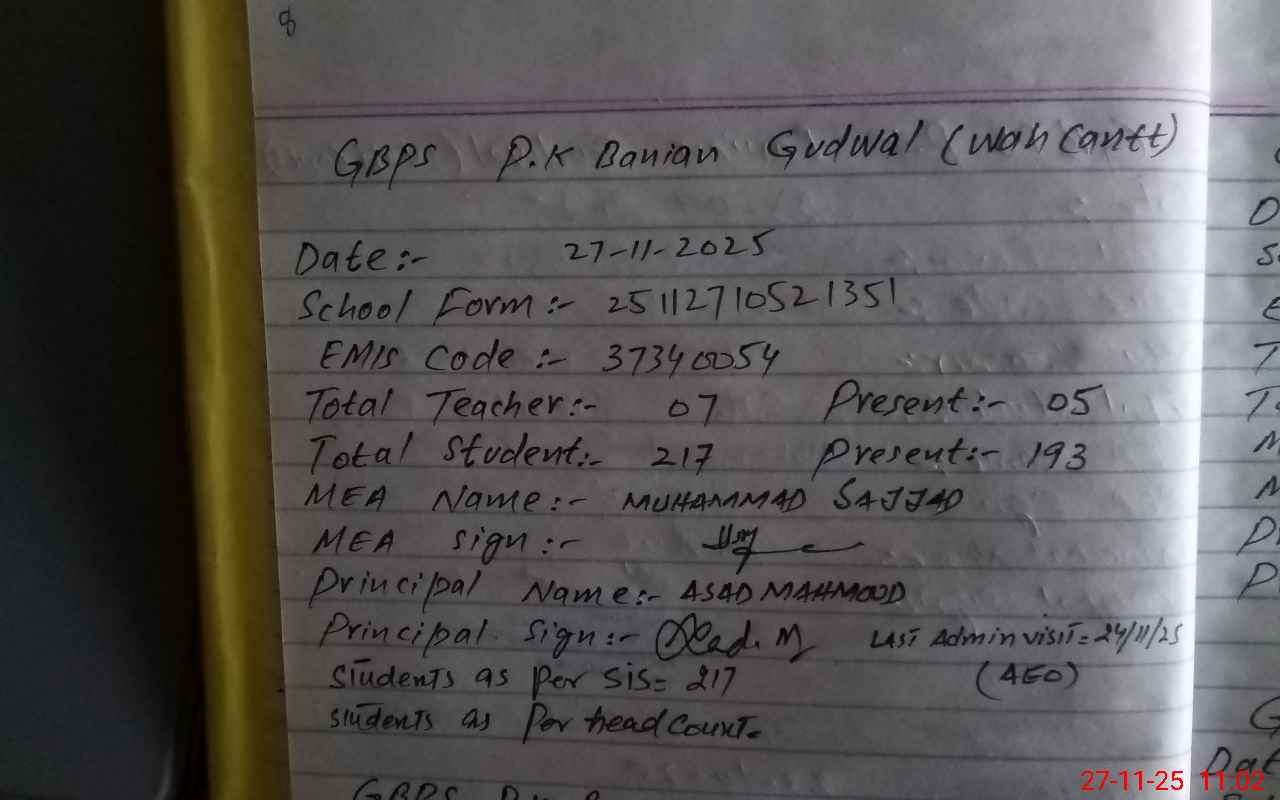 8
GBPS P.K Banian Gudwal (Wah Cantt)
Date:- 27-11-2025
School Form:- 25112710521351
EMIS Code:- 37340054
Total Teacher:- 07 Present:- 05
Total Student:- 217 Present:- 193
MEA Name:- MUHAMMAD SAJJAD
MEA Sign:-
Principal Name:- ASAD MAHMOOD
Principal Sign:- Asad. M LAST Admin visit= 24/11/25
Students as per SIS= 217 (AEO)
Students as Per head Count=
27-11-25 11:02